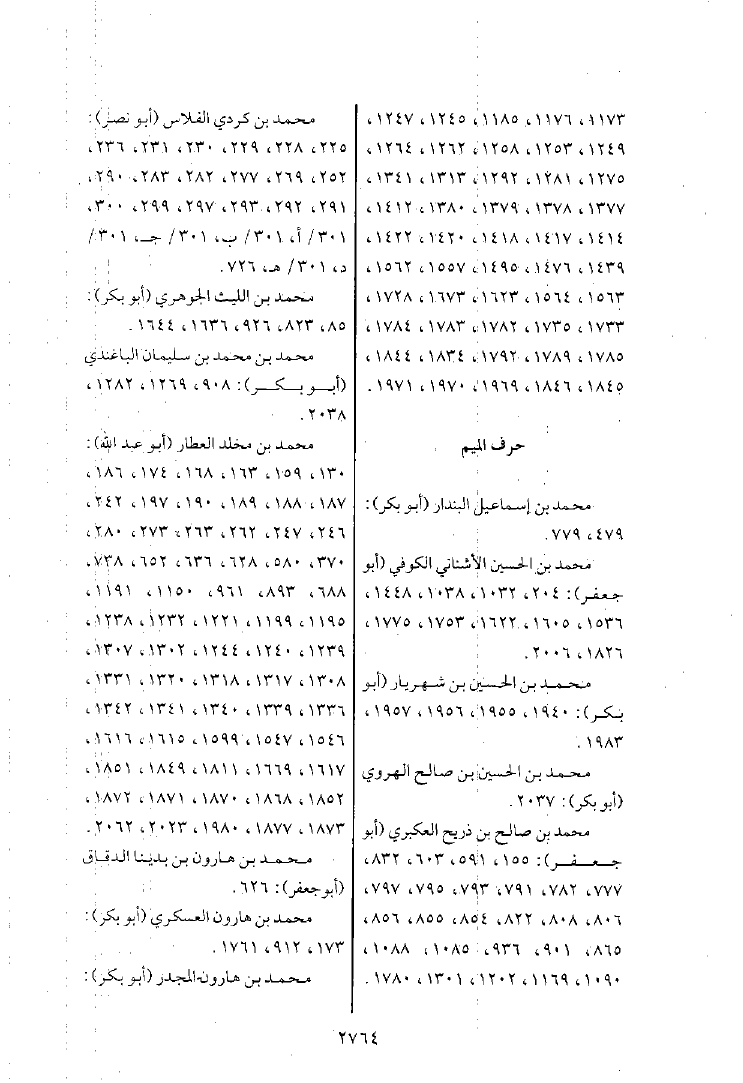 ١١٧٣، ١١٧٦، ١١٨٥، ١٢٤٥، ١٢٤٧،
١٢٤٩، ١٢٥٣، ١٢٥٨، ١٢٦٢، ١٢٦٤،
١٢٧٥، ١٢٨١، ١٢٩٢، ١٣١٣، ١٣٤١،
١٣٧٧، ١٣٧٨، ١٣٧٩، ١٣٨٠، ١٤١٢،
١٤١٤، ١٤١٧، ١٤١٨، ١٤٢٠، ١٤٢٢،
١٤٣٩، ١٤٧٦، ١٤٩٥، ١٥٥٧، ١٥٦٢،
١٥٦٣، ١٥٦٤، ١٦٢٣، ١٦٧٣، ١٧٢٨،
١٧٣٣، ١٧٣٥، ١٧٨٢، ١٧٨٣، ١٧٨٤،
١٧٨٥، ١٧٨٩، ١٧٩٢، ١٨٣٤، ١٨٤٤،
١٨٤٥، ١٨٤٦، ١٩٦٩، ١٩٧٠، ١٩٧١.
حرف الميم
محمد بن إسماعيل البندار (أبو بكر):
٤٧٩، ٧٧٩.
محمد بن الحسين الأشناني الكوفي (أبو
جعفر): ٢٠٤، ١٠٣٢، ١٠٣٨، ١٤٤٨،
١٥٣٦، ١٦٠٥، ١٦٢٢، ١٧٥٣، ١٧٧٥،
١٨٢٦، ٢٠٠٦.
محمد بن الحسين بن شهريار (أبو
بكر): ١٩٤٠، ١٩٥٥، ١٩٥٦، ١٩٥٧،
١٩٨٣.
محمد بن الحسين بن صالح الهروي
(أبو بكر): ٢٠٣٧.
محمد بن صالح بن ذريح العكبري (أبو
جعفر): ١٥٥، ٥٩١، ٦٠٣، ٨٣٢،
٧٧٧، ٧٨٢، ٧٩١، ٧٩٣، ٧٩٥، ٧٩٧،
٨٠٦، ٨٠٨، ٨٢٢، ٨٥٤، ٨٥٥، ٨٥٦،
٨٦٥، ٩٠١، ٩٣٦، ١٠٨٥، ١٠٨٨،
١٠٩٠، ١١٦٩، ١٢٠٢، ١٣٠١، ١٧٨٠.
محمد بن كردي الفلاس (أبو نصر):
٢٢٥، ٢٢٨، ٢٢٩، ٢٣٠، ٢٣١، ٢٣٦،
٢٥٢، ٢٦٩، ٢٧٧، ٢٨٢، ٢٨٣، ٢٩٠،
٢٩١، ٢٩٢، ٢٩٣، ٢٩٧، ٢٩٩، ٣٠٠،
٣٠١/ أ، ٣٠١/ ب، ٣٠١/ جـ، ٣٠١/
د، ٣٠١/ هـ، ٧٢٦.
محمد بن الليث الجوهري (أبو بكر):
٨٥، ٨٢٣، ٩٢٦، ١٦٣٦، ١٦٤٤.
محمد بن محمد بن سليمان الباغندي
(أبو بكر): ٩٠٨، ١٢٦٩، ١٢٨٢،
٢٠٣٨.
محمد بن مخلد العطار (أبو عبد الله):
١٣٠، ١٥٩، ١٦٣، ١٦٨، ١٧٤، ١٨٦،
١٨٧، ١٨٨، ١٨٩، ١٩٠، ١٩٧، ٢٤٢،
٢٤٦، ٢٤٧، ٢٦٢، ٢٦٣، ٢٧٣، ٢٨٠،
٣٧٠، ٥٨٠، ٦٢٨، ٦٣٦، ٦٥٢، ٧٣٨،
٦٨٨، ٨٩٣، ٩٦١، ١١٥٠، ١١٩١،
١١٩٥، ١١٩٩، ١٢٢١، ١٢٣٢، ١٢٣٨،
١٢٣٩، ١٢٤٠، ١٢٤٤، ١٣٠٢، ١٣٠٧،
١٣٠٨، ١٣١٧، ١٣١٨، ١٣٢٠، ١٣٣١،
١٣٣٦، ١٣٣٩، ١٣٤٠، ١٣٤١، ١٣٤٢،
١٥٤٦، ١٥٤٧، ١٥٩٩، ١٦١٥، ١٦١٦،
١٦١٧، ١٦٦٩، ١٨١١، ١٨٤٩، ١٨٥١،
١٨٥٢، ١٨٦٨، ١٨٧٠، ١٨٧١، ١٨٧٢،
١٨٧٣، ١٨٧٧، ١٩٨٠، ٢٠٢٣، ٢٠٦٢.
محمد بن هارون بن بدينا الدقاق
(أبو جعفر): ٦٢٦.
محمد بن هارون العسكري (أبو بكر):
١٧٣، ٩١٢، ١٧٦١.
محمد بن هارون المجدر (أبو بكر):
٢٧٦٤